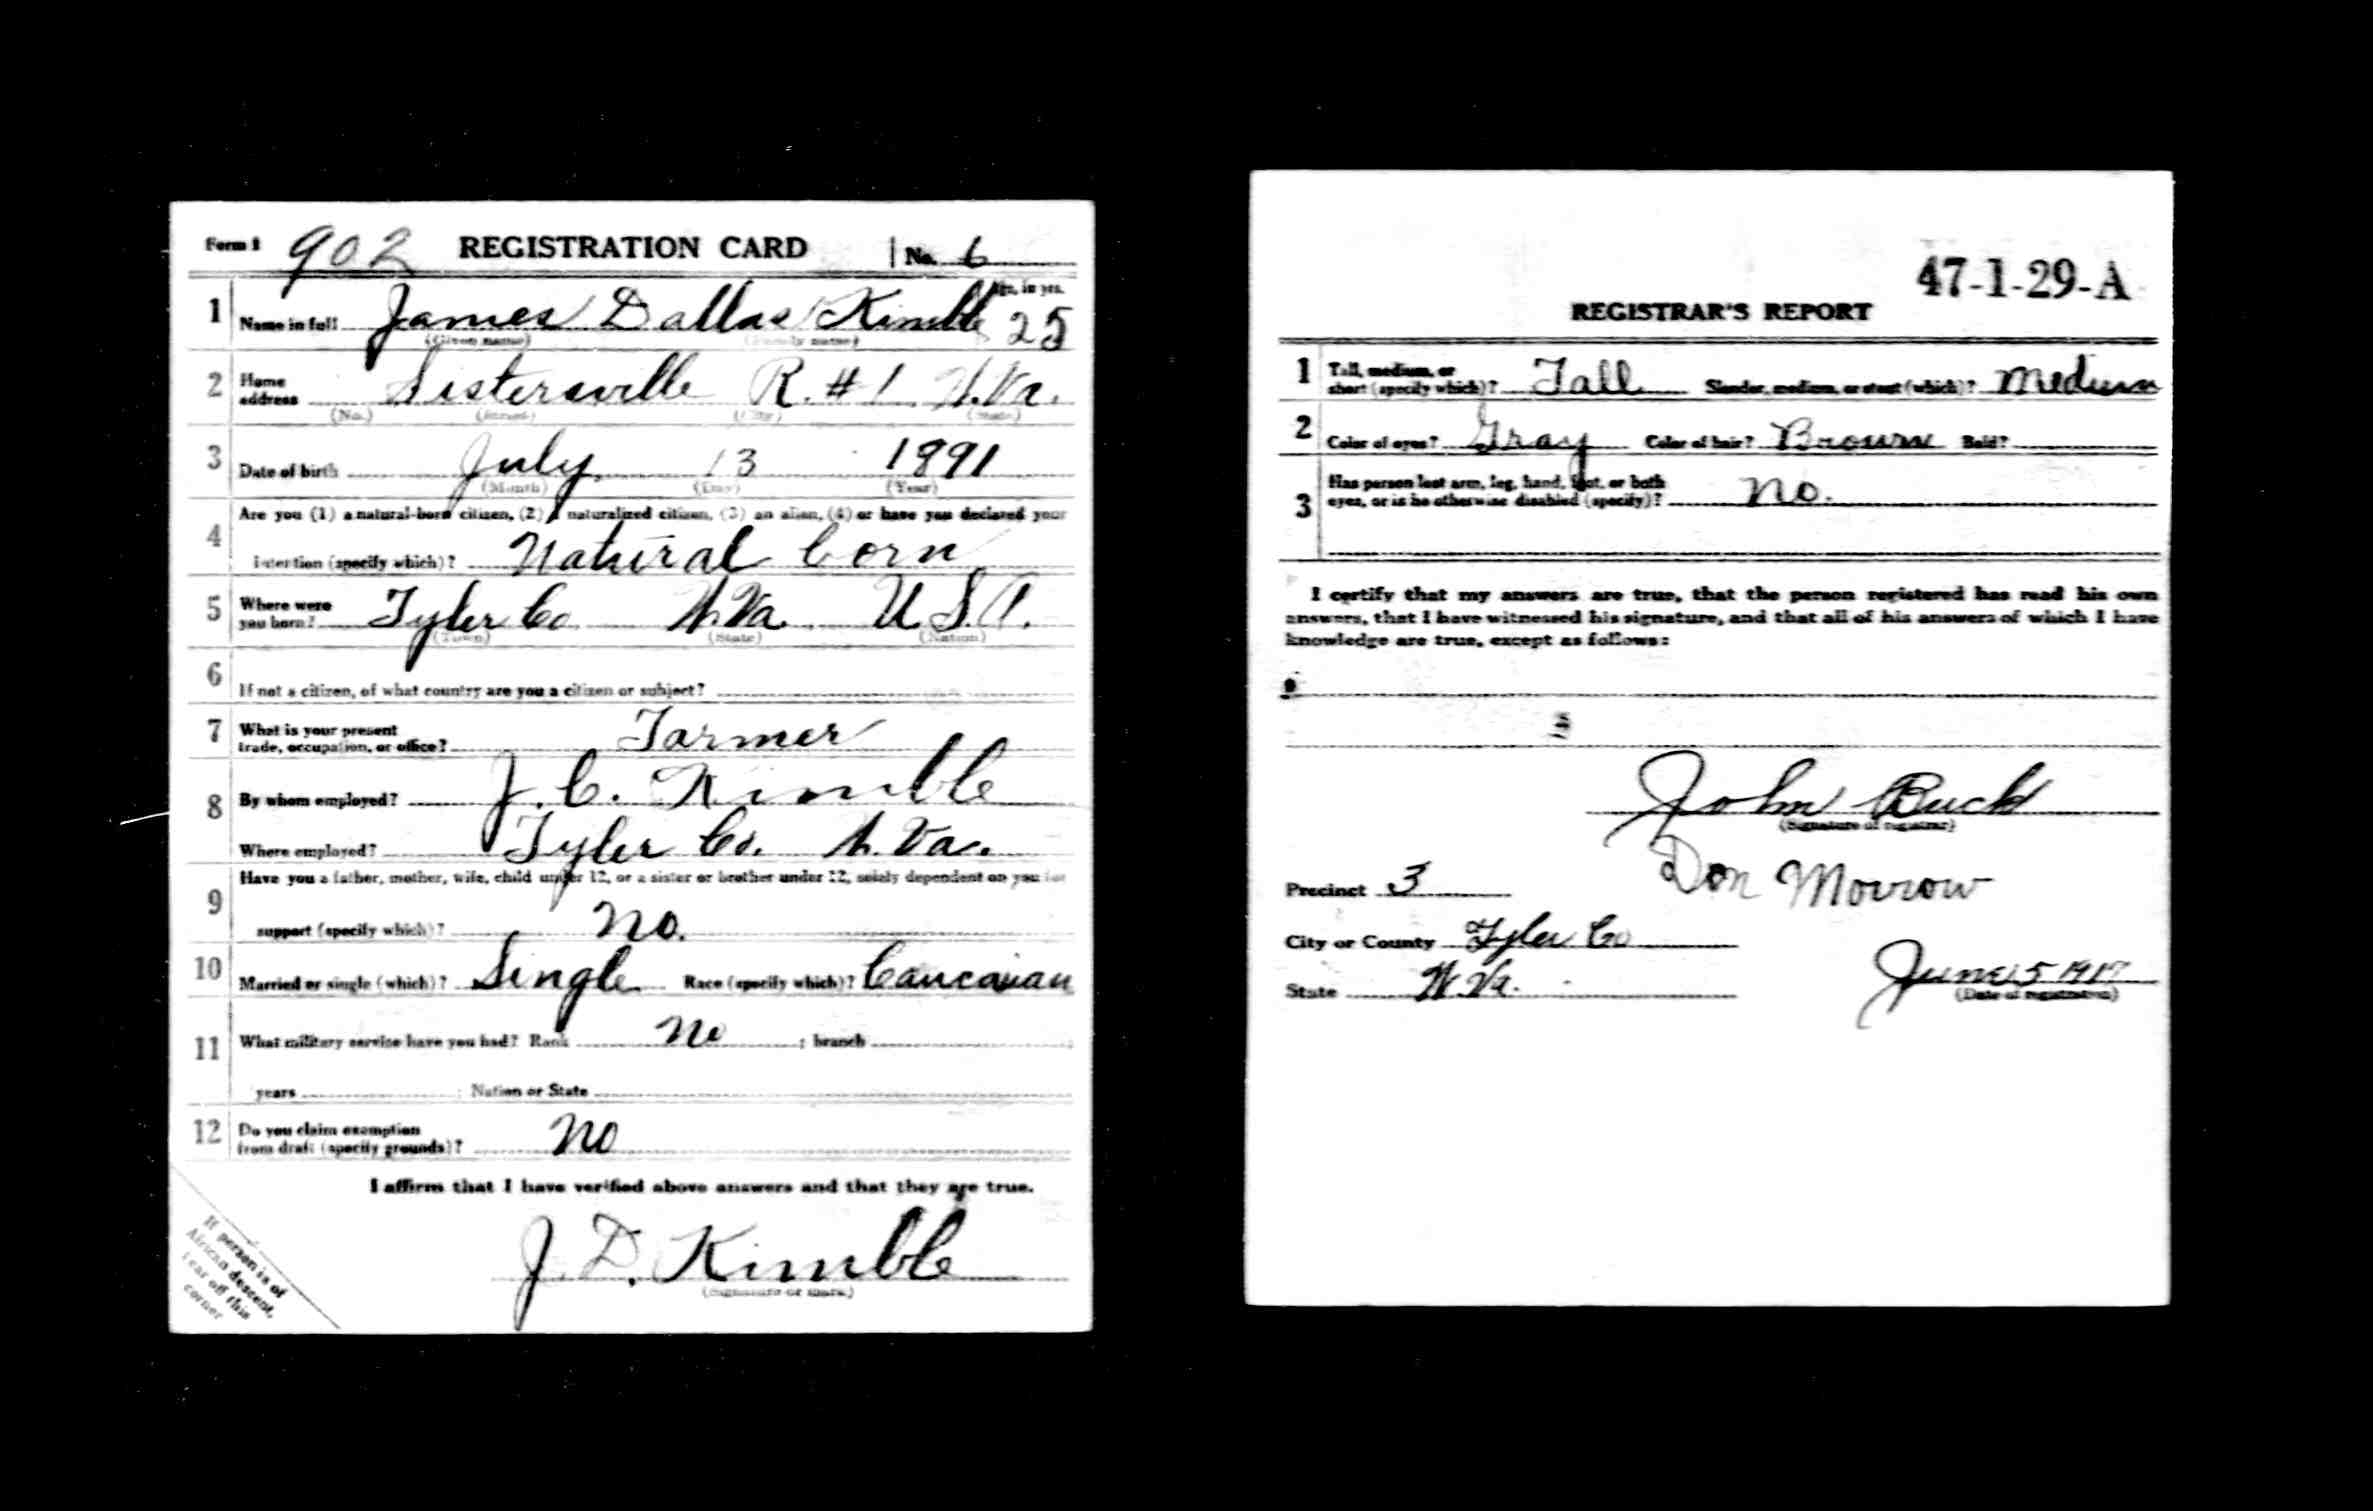 Form 1 902 REGISTRATION CARD No. 6
1 Name in full James Dallas Kimble Age, in yrs. 25
(Given name) (Family name)
2 Home address Sistersville R. #1 W.Va.
(No.) (Street) (City) (State)
3 Date of birth July, 13 1891
(Month) (Day) (Year)
4 Are you (1) a natural-born citizen, (2) a naturalized citizen, (3) an alien, (4) or have you declared your
intention (specify which)? Natural born
5 Where were you born? Tyler Co W.Va. U.S.A.
(Town) (State) (Nation)
6 If not a citizen, of what country are you a citizen or subject?
7 What is your present
trade, occupation, or office? Farmer
8 By whom employed? J. C. Kimble
Where employed? Tyler Co. W. Va.
9 Have you a father, mother, wife, child under 12, or a sister or brother under 12, solely dependent on you for
support (specify which)? No.
10 Married or single (which)? Single Race (specify which)? Caucasian
11 What military service have you had? Rank No ; branch ;
years ; Nation or State
12 Do you claim exemption
from draft (specify grounds)? No
I affirm that I have verified above answers and that they are true.
J. D. Kimble
(Signature or mark)
If person is of
African descent,
tear off this
corner
47-1-29-A
REGISTRAR'S REPORT
1 Tall, medium, or
short (specify which)? Tall Slender, medium, or stout (which)? Medium
2 Color of eyes? Gray Color of hair? Brown Bald?
3 Has person lost arm, leg, hand, foot, or both
eyes, or is he otherwise disabled (specify)? No.
I certify that my answers are true, that the person registered has read his own
answers, that I have witnessed his signature, and that all of his answers of which I have
knowledge are true, except as follows:
John Buck
(Signature of registrar)
Don Morrow
Precinct 3
City or County Tyler Co
State W. Va.
June 5 1917
(Date of registration)